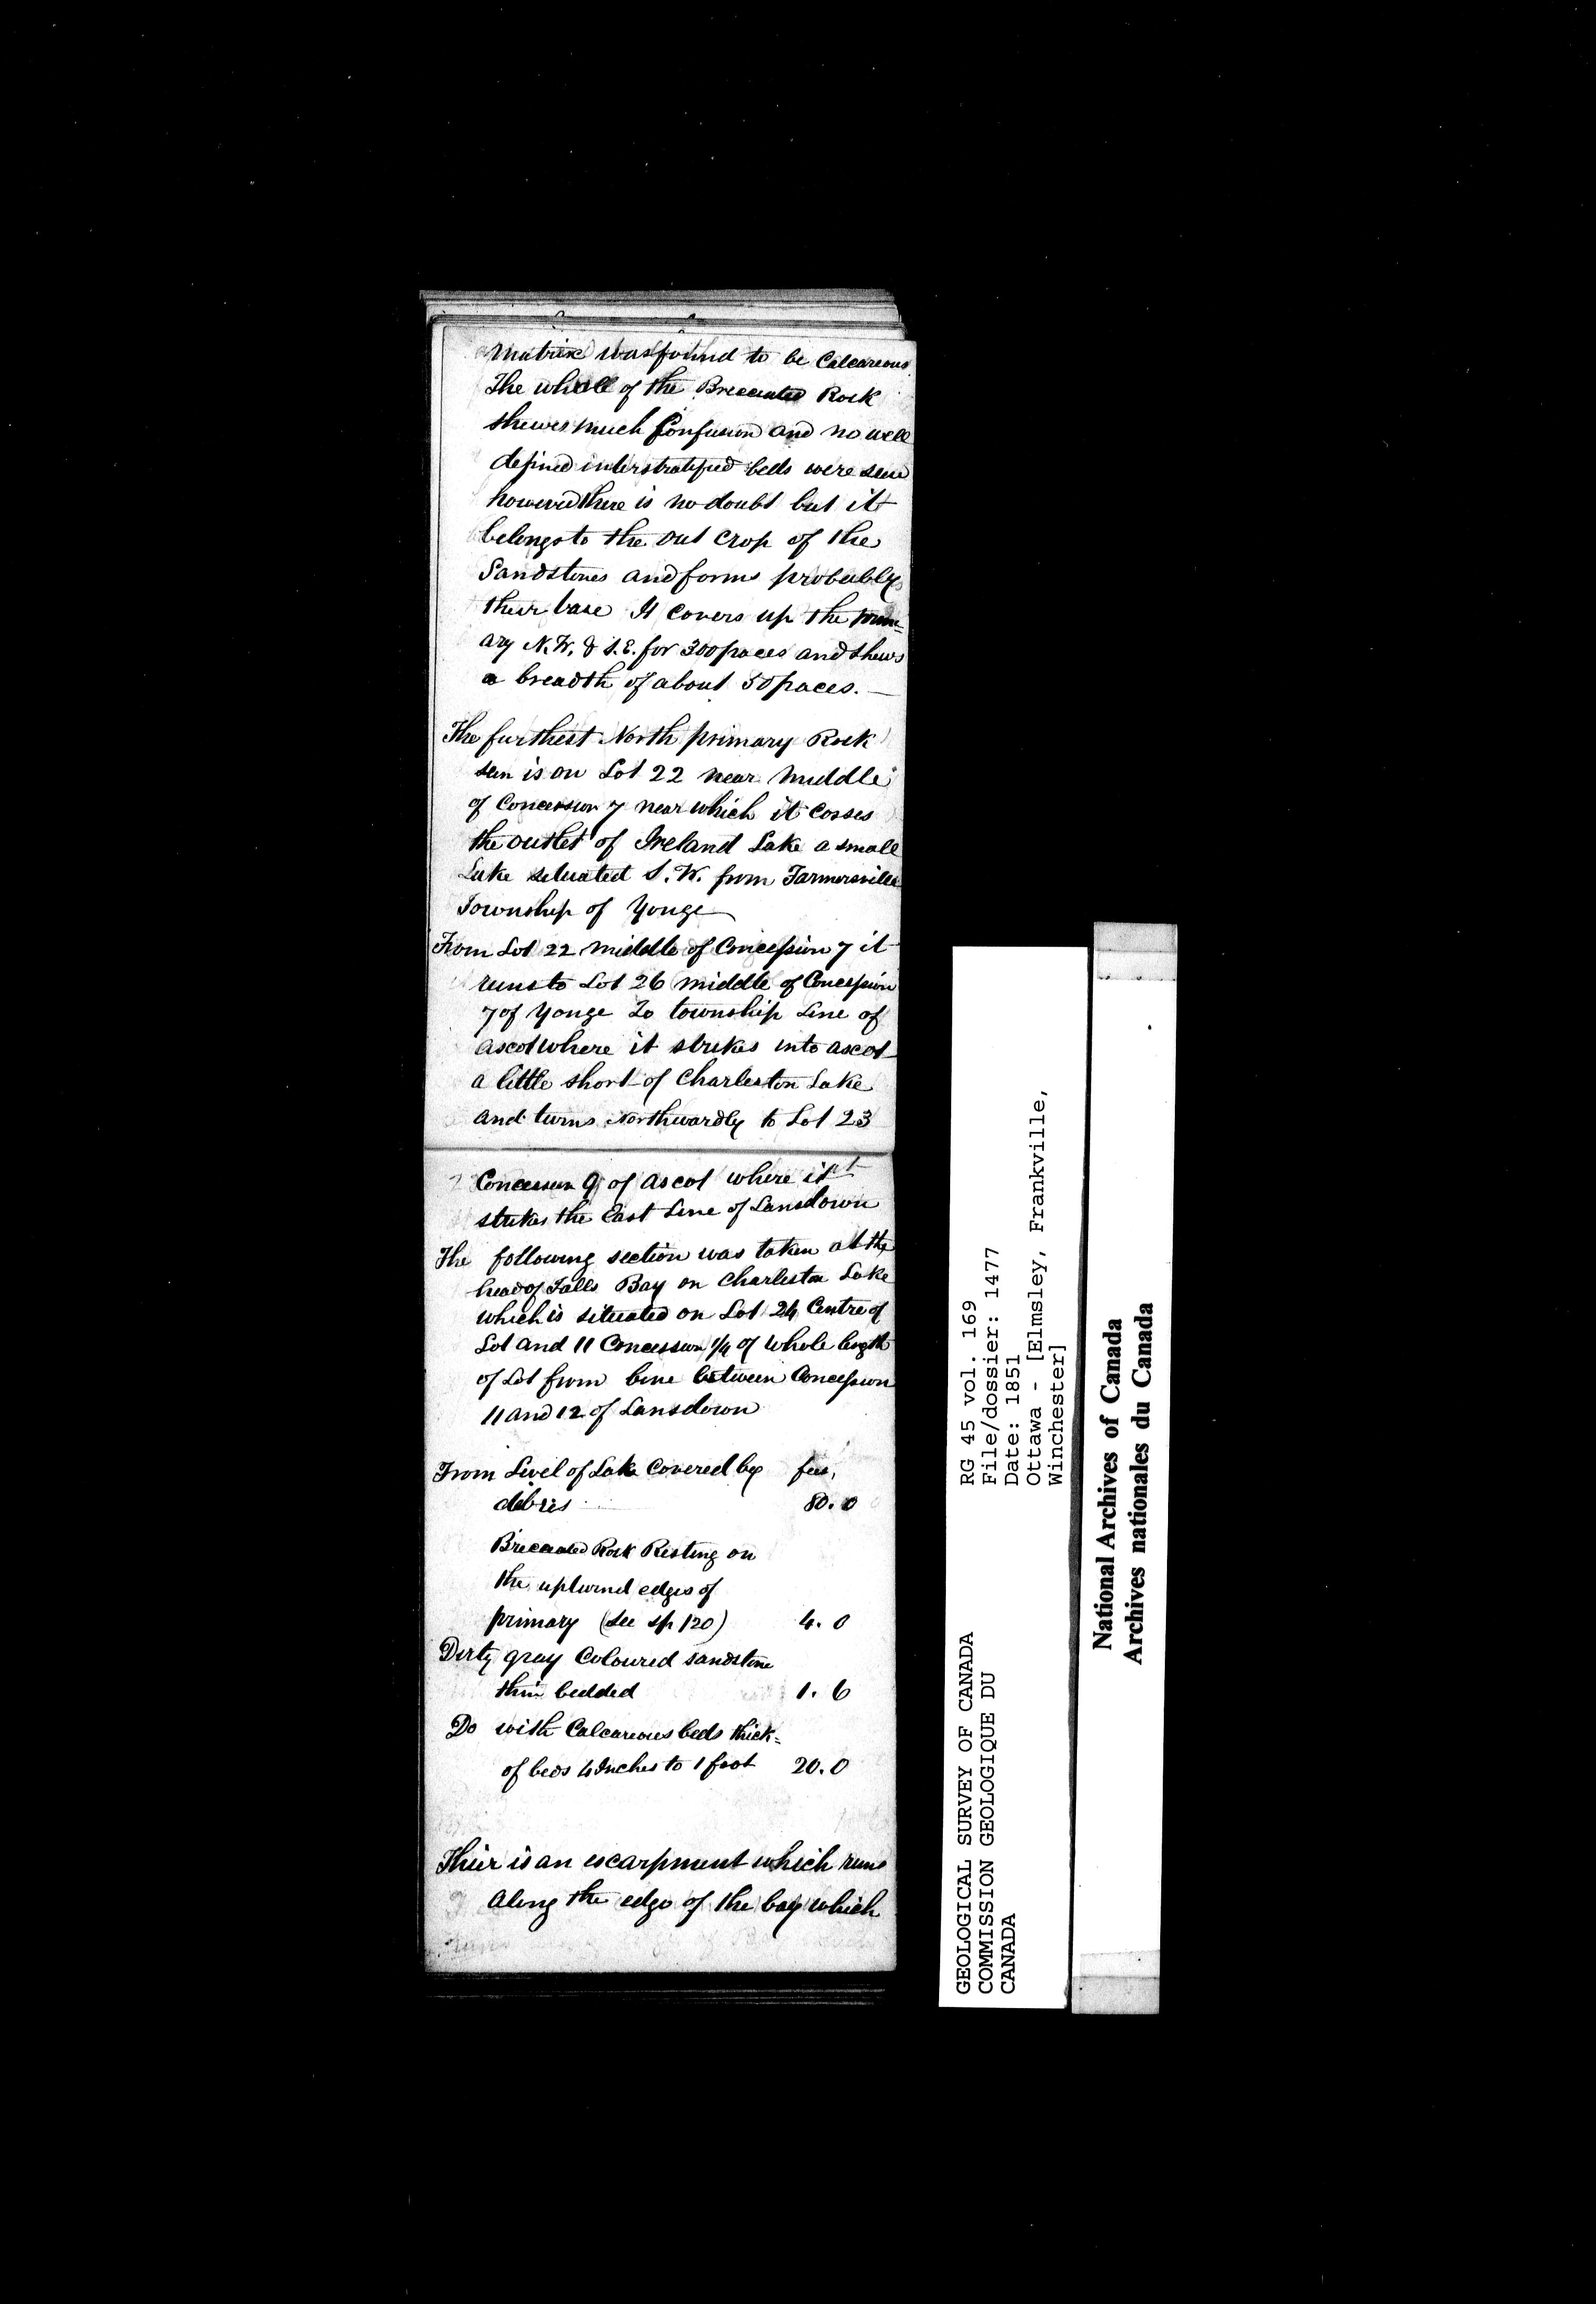 Matrix was found to be Calcareous.
The whole of the Brecciated Rock
shews much Confusion and no well
defined interstratified beds were seen
however there is no doubt but it
belongs to the out crop of the
Sandstones and forms probably
their base It Covers up the prim-
ary N.W. & S.E. for 300 paces and shews
a breadth of about 50 paces. —
The furthest North primary Rock
seen is on Lot 22 near Middle
of Concession 7 near which it Cosses
the outlet of Ireland Lake a small
Lake situated S.W. from Farmersville
Township of Yonge
From Lot 22 Middle of Concession 7 it
runs to Lot 26 middle of Concession
7 of Yonge To township Line of
ascot where it strikes into ascot
a little short of Charleston Lake
and turns Northwardly to Lot 23
Concession 9 of ascot where it
strikes the East Line of Lansdown
The following section was taken at the
head of Falls Bay on Charleston Lake
which is situated on Lot 24 Centre of
Lot and 11 Concession 1/4 of Whole length
of Lot from line between Concession
11 and 12 of Lansdown
From Level of Lake Covered by feet,
debris 80.0
Brecciated Rock Resting on
the upturned edges of
primary (see sp 120) 4.0
Dirty gray Coloured sandstone
thin bedded 1.6
Do with Calcareous beds thick-
of beds 4 Inches to 1 foot 20.0
Thier is an escarpment which runs
along the edge of the bay which
GEOLOGICAL SURVEY OF CANADA
COMMISSION GEOLOGIQUE DU
CANADA
RG 45 vol. 169
File/dossier: 1477
Date: 1851
Ottawa - [Elmsley, Frankville,
Winchester]
National Archives of Canada
Archives nationales du Canada